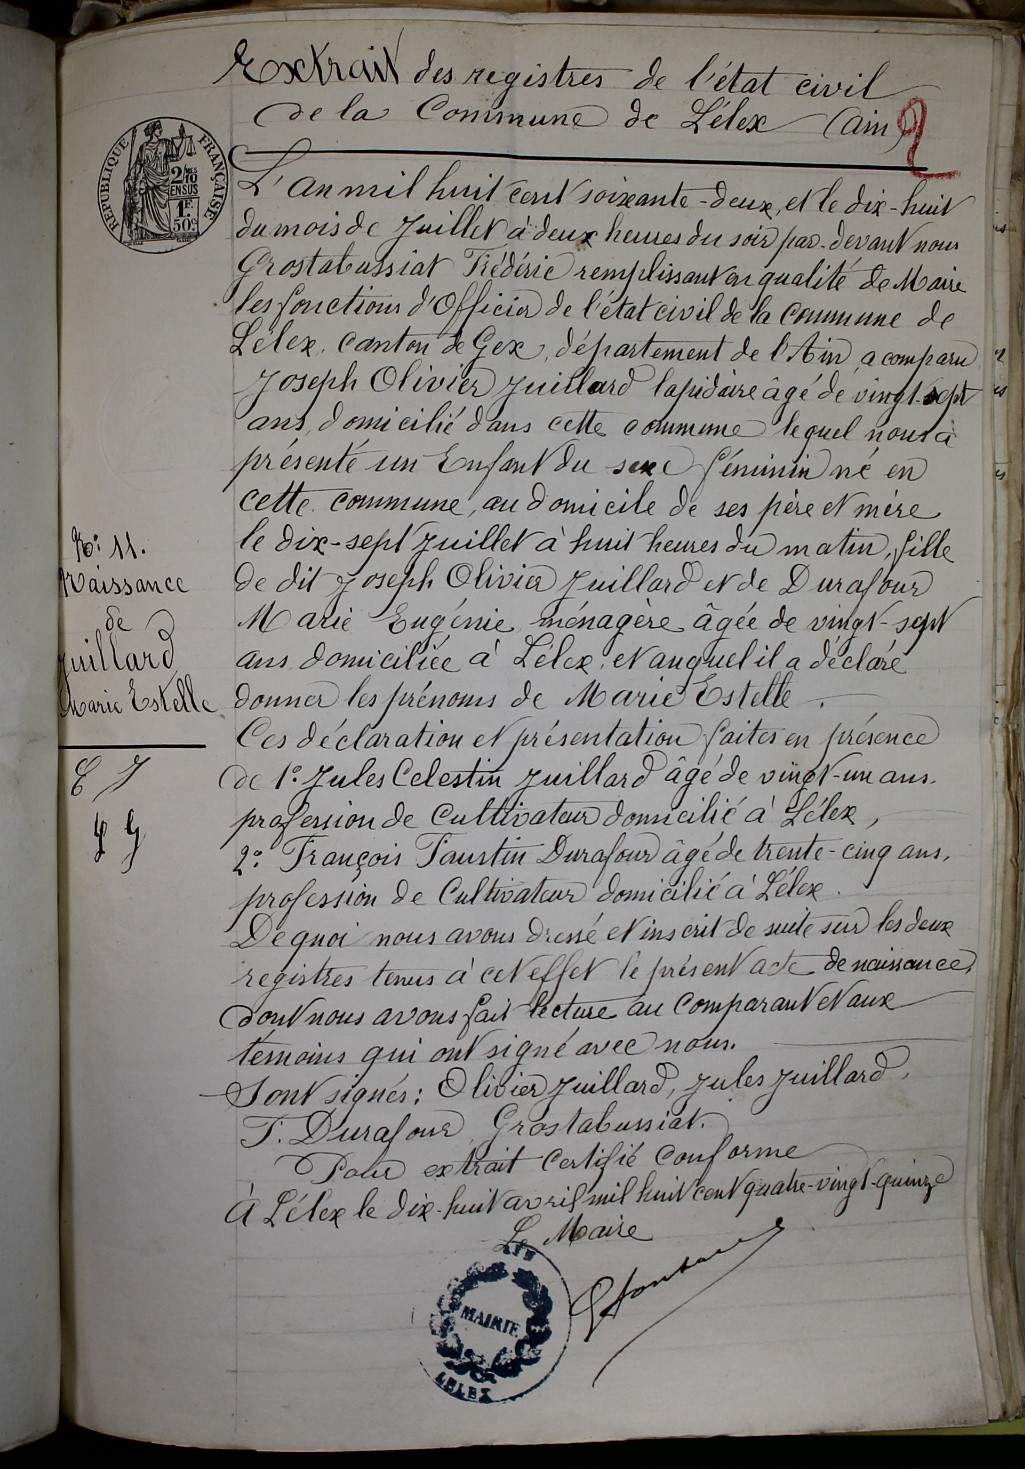 Extrait des registres de l'état civil
de la Commune de Lélex (Ain)
2
RÉPUBLIQUE FRANÇAISE
2/10
EN SUS
1F.
50c
L'an mil huit cent soixante-deux, et le dix-huit
du mois de Juillet à deux heures du soir par-devant nous
Grostabussiat Frédéric remplissant en qualité de Maire
les fonctions d'Officier de l'état civil de la Commune de
Lélex, Canton de Gex, département de l'Ain, a comparu
Joseph Olivier Juillard lapidaire âgé de vingt-sept
ans, domicilié dans cette commune lequel nous a
présenté un Enfant du sexe féminin né en
cette commune, au domicile de ses père et mère
le dix-sept Juillet à huit heures du matin, fille
de dit Joseph Olivier Juillard et de Durafour
Marie Eugénie ménagère âgée de vingt-sept
ans domiciliée à Lélex, et auquel il a déclaré
donner les prénoms de Marie Estelle.
Ces déclaration et présentation faites en présence
de 1º Jules Celestin Juillard âgé de vingt-un ans.
profession de Cultivateur domicilié à Lélex,
2º François Faustin Durafour âgé de trente-cinq ans,
profession de Cultivateur domicilié à Lélex.
De quoi nous avons dressé et inscrit de suite sur les deux
registres tenus à cet effet le présent acte de naissance,
dont nous avons fait lecture au Comparant et aux
témoins qui ont signé avec nous.
Sont signés: Olivier Juillard, Jules Juillard,
F. Durafour, Grostabussiat.
Pour extrait Certifié conforme
À Lélex le dix-huit avril mil huit cent quatre-vingt-quinze
Le Maire
AIN
MAIRIE
LELEX
Nº 11.
Naissance
de
Juillard
Marie Estelle